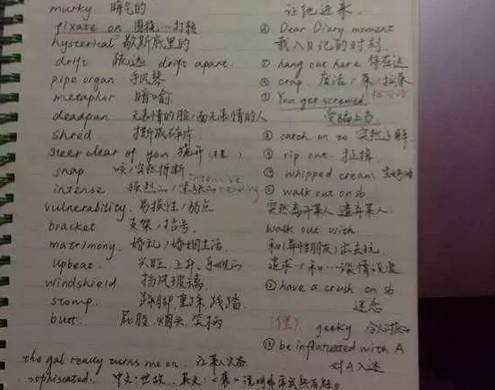 murky 暗气的
fixate on 围绕…打转
hysterical 歇斯底里的
drift 疏远 drift apart.
pipe organ 手风琴
metaphor 暗喻
deadpan 无表情的脸/面无表情的人
shred 撕成碎片
steer clear of you 绕开
snap 突然折断
intense intensive reading
vulnerability. 易损性/弱点
bracket 支架/括号.
matrimony. 婚礼/婚姻生活
upbeat. 上升.
windshield 挡风玻璃.
stomp. 跺脚 重踩 践踏
butt. 屁股. 烟头 笑柄
the gal really turns me on.
sophisticated.
让他进来.
Dear Diary moment
载入日记的时刻
hang out here 待在这
crap. 废话/
You get screwed
catch on to 突然了解.
rip out 扯掉.
whipped cream
walk out on sb
突然离开某人 遗弃某人
walk out with
出去玩.
追求/和…谈情说爱
have a crush on sb
迷恋
geeky
be infatuated with A
对A入迷